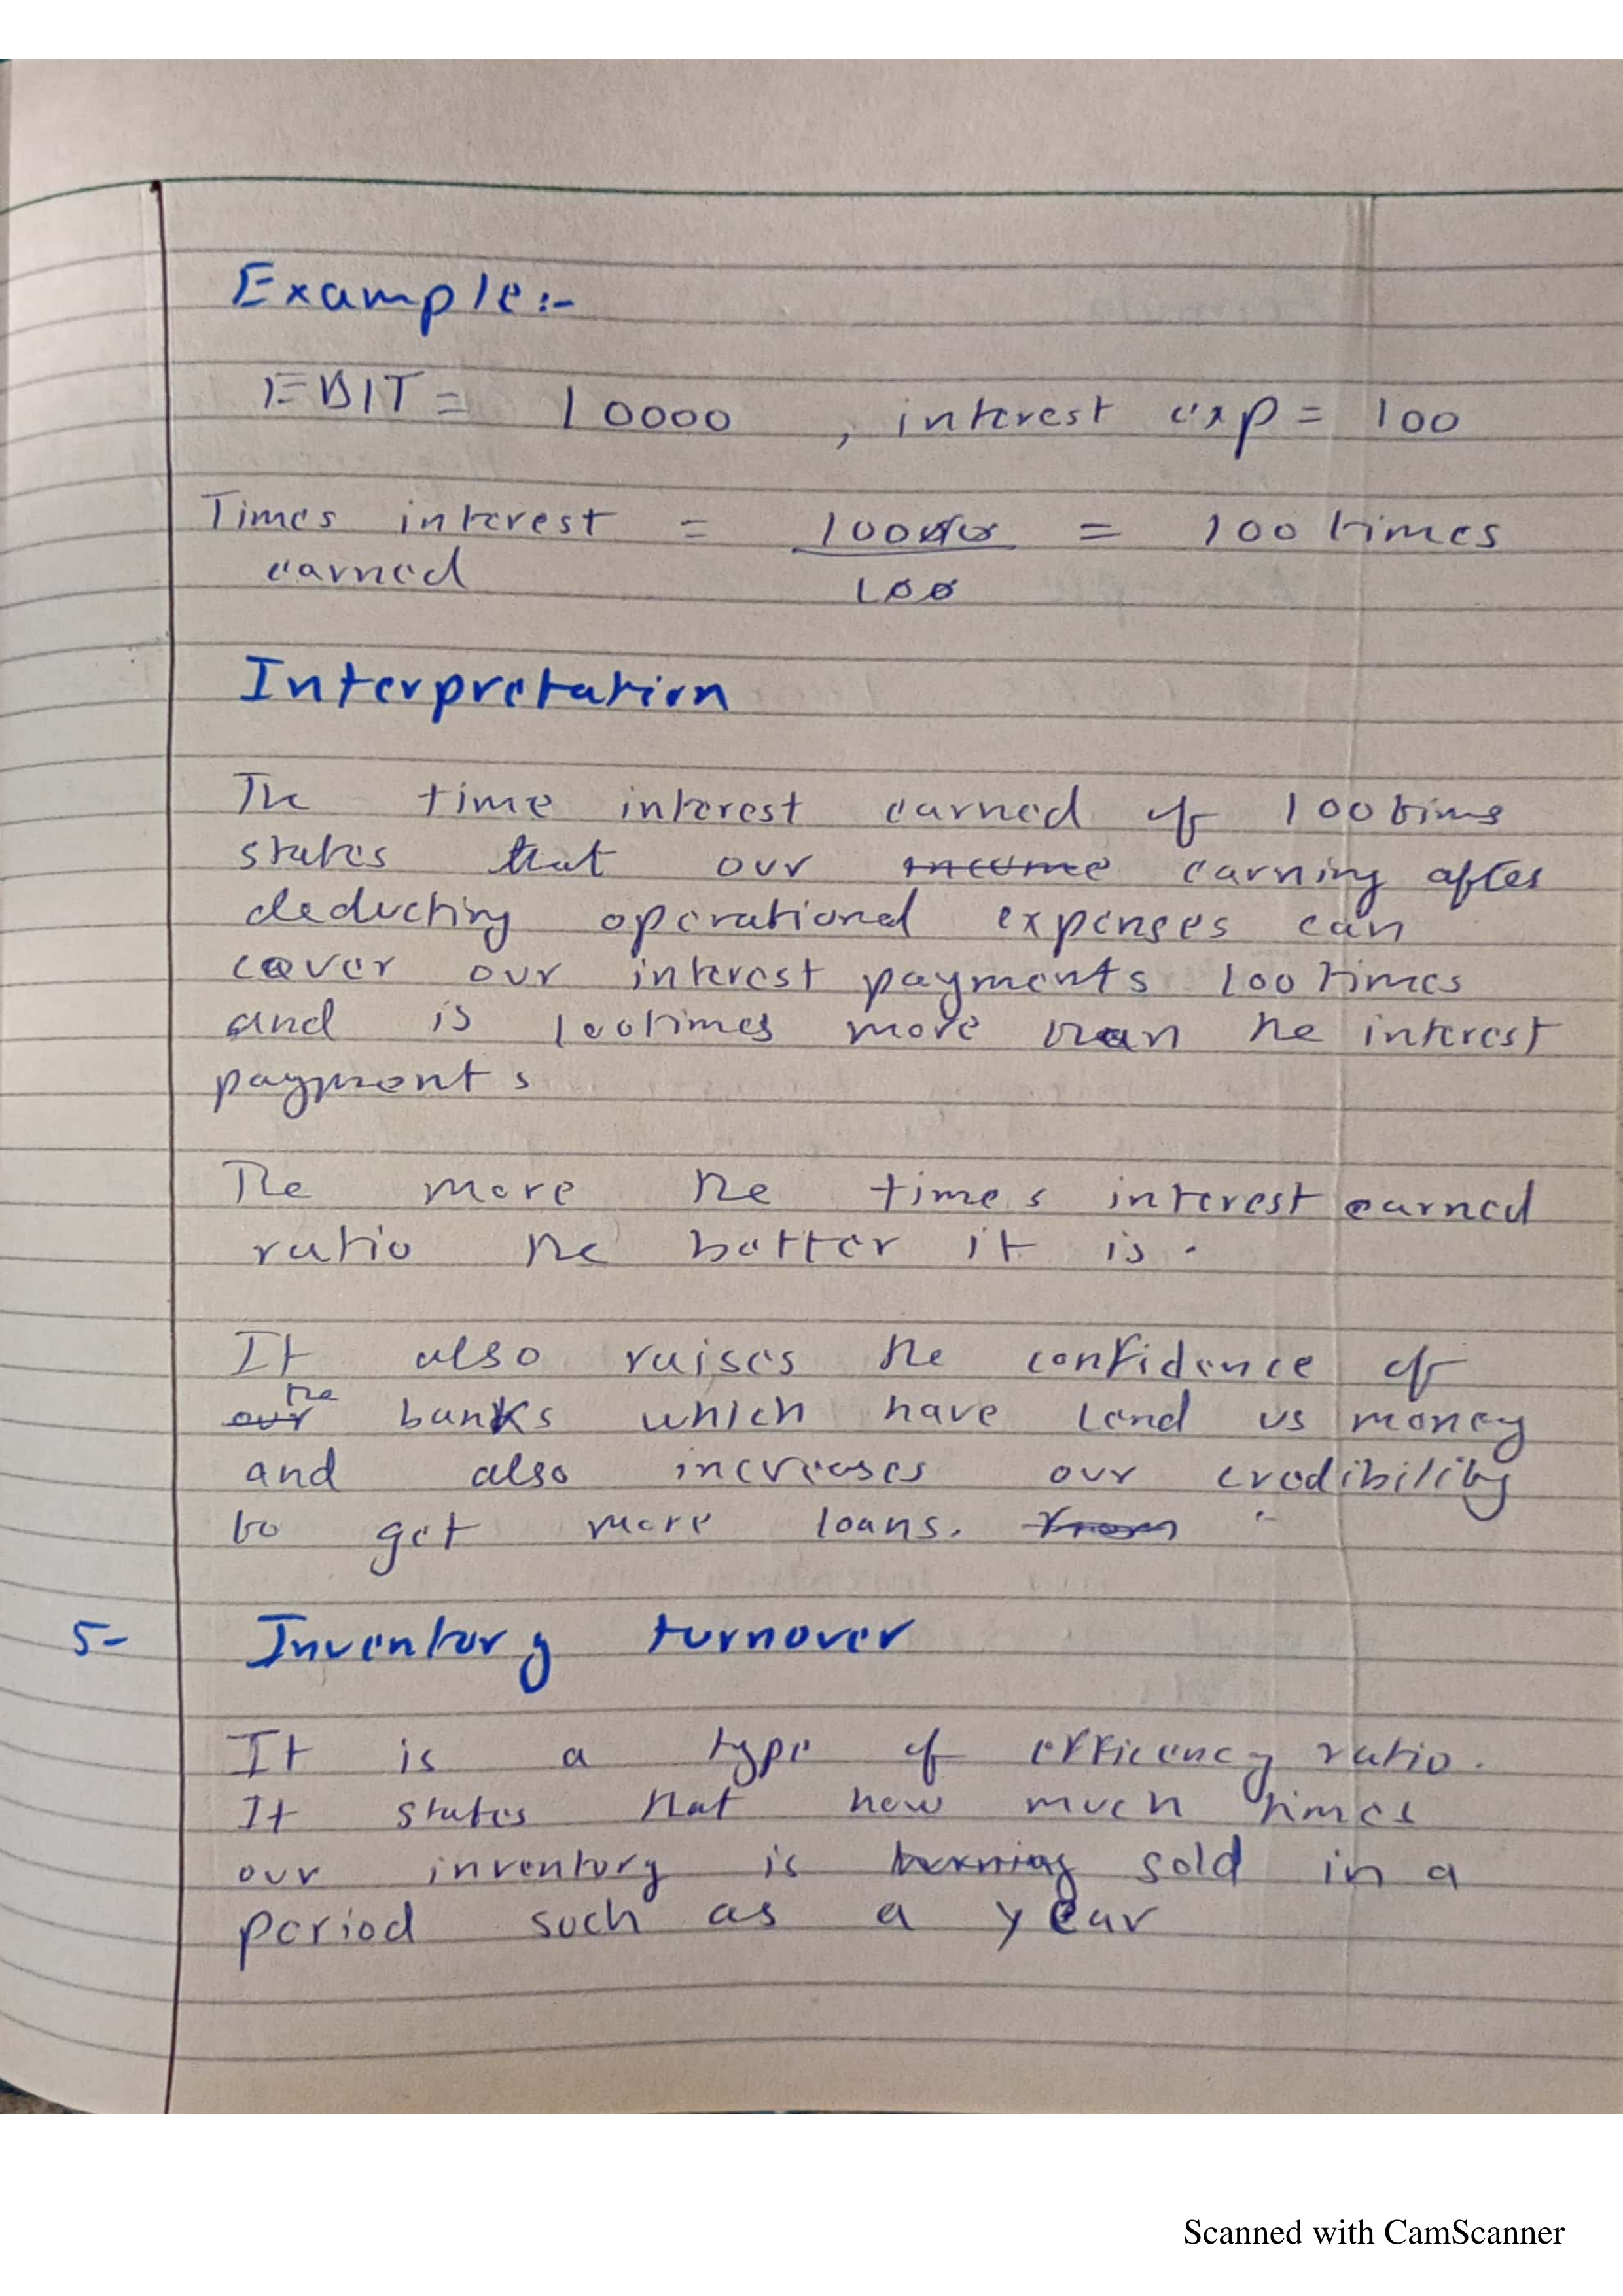 Example:-
EBIT = 10000 , interest exp = 100
Times interest = 10000 = 100 times
earned 100
Interpretation
The time interest earned of 100 times
states that our income earning after
deducting operational expenses can
cover our interest payments 100 times
and is 100 times more than the interest
payments
The more the times interest earned
ratio the better it is.
It also raises the confidence of
the
our banks which have lend us money
and also increases our credibility
to get more loans. from
5- Inventory turnover
It is a type of efficency ratio.
It states that how much times
our inventory is turning sold in a
period such as a year
Scanned with CamScanner